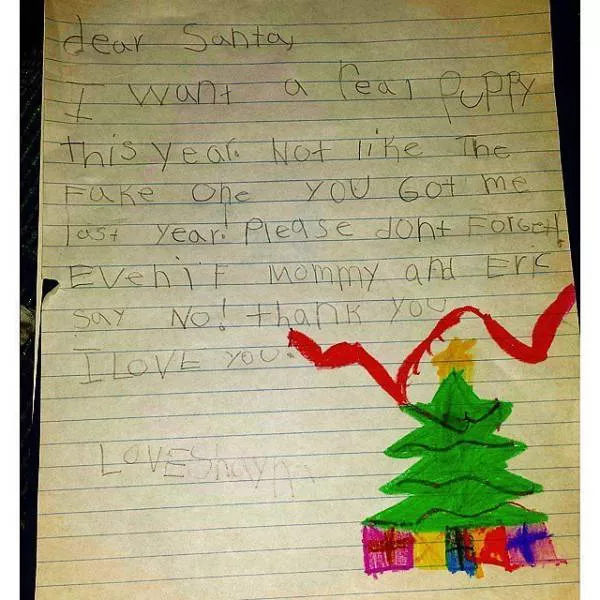 dear Santa,
I want a real PUPPY
This year. Not like The
Fake one YOU Got me
last year! Please dont Forget!
Even if mommy and Eric
Say No! thank you
I LOVE YOU.
LOVE Shayna